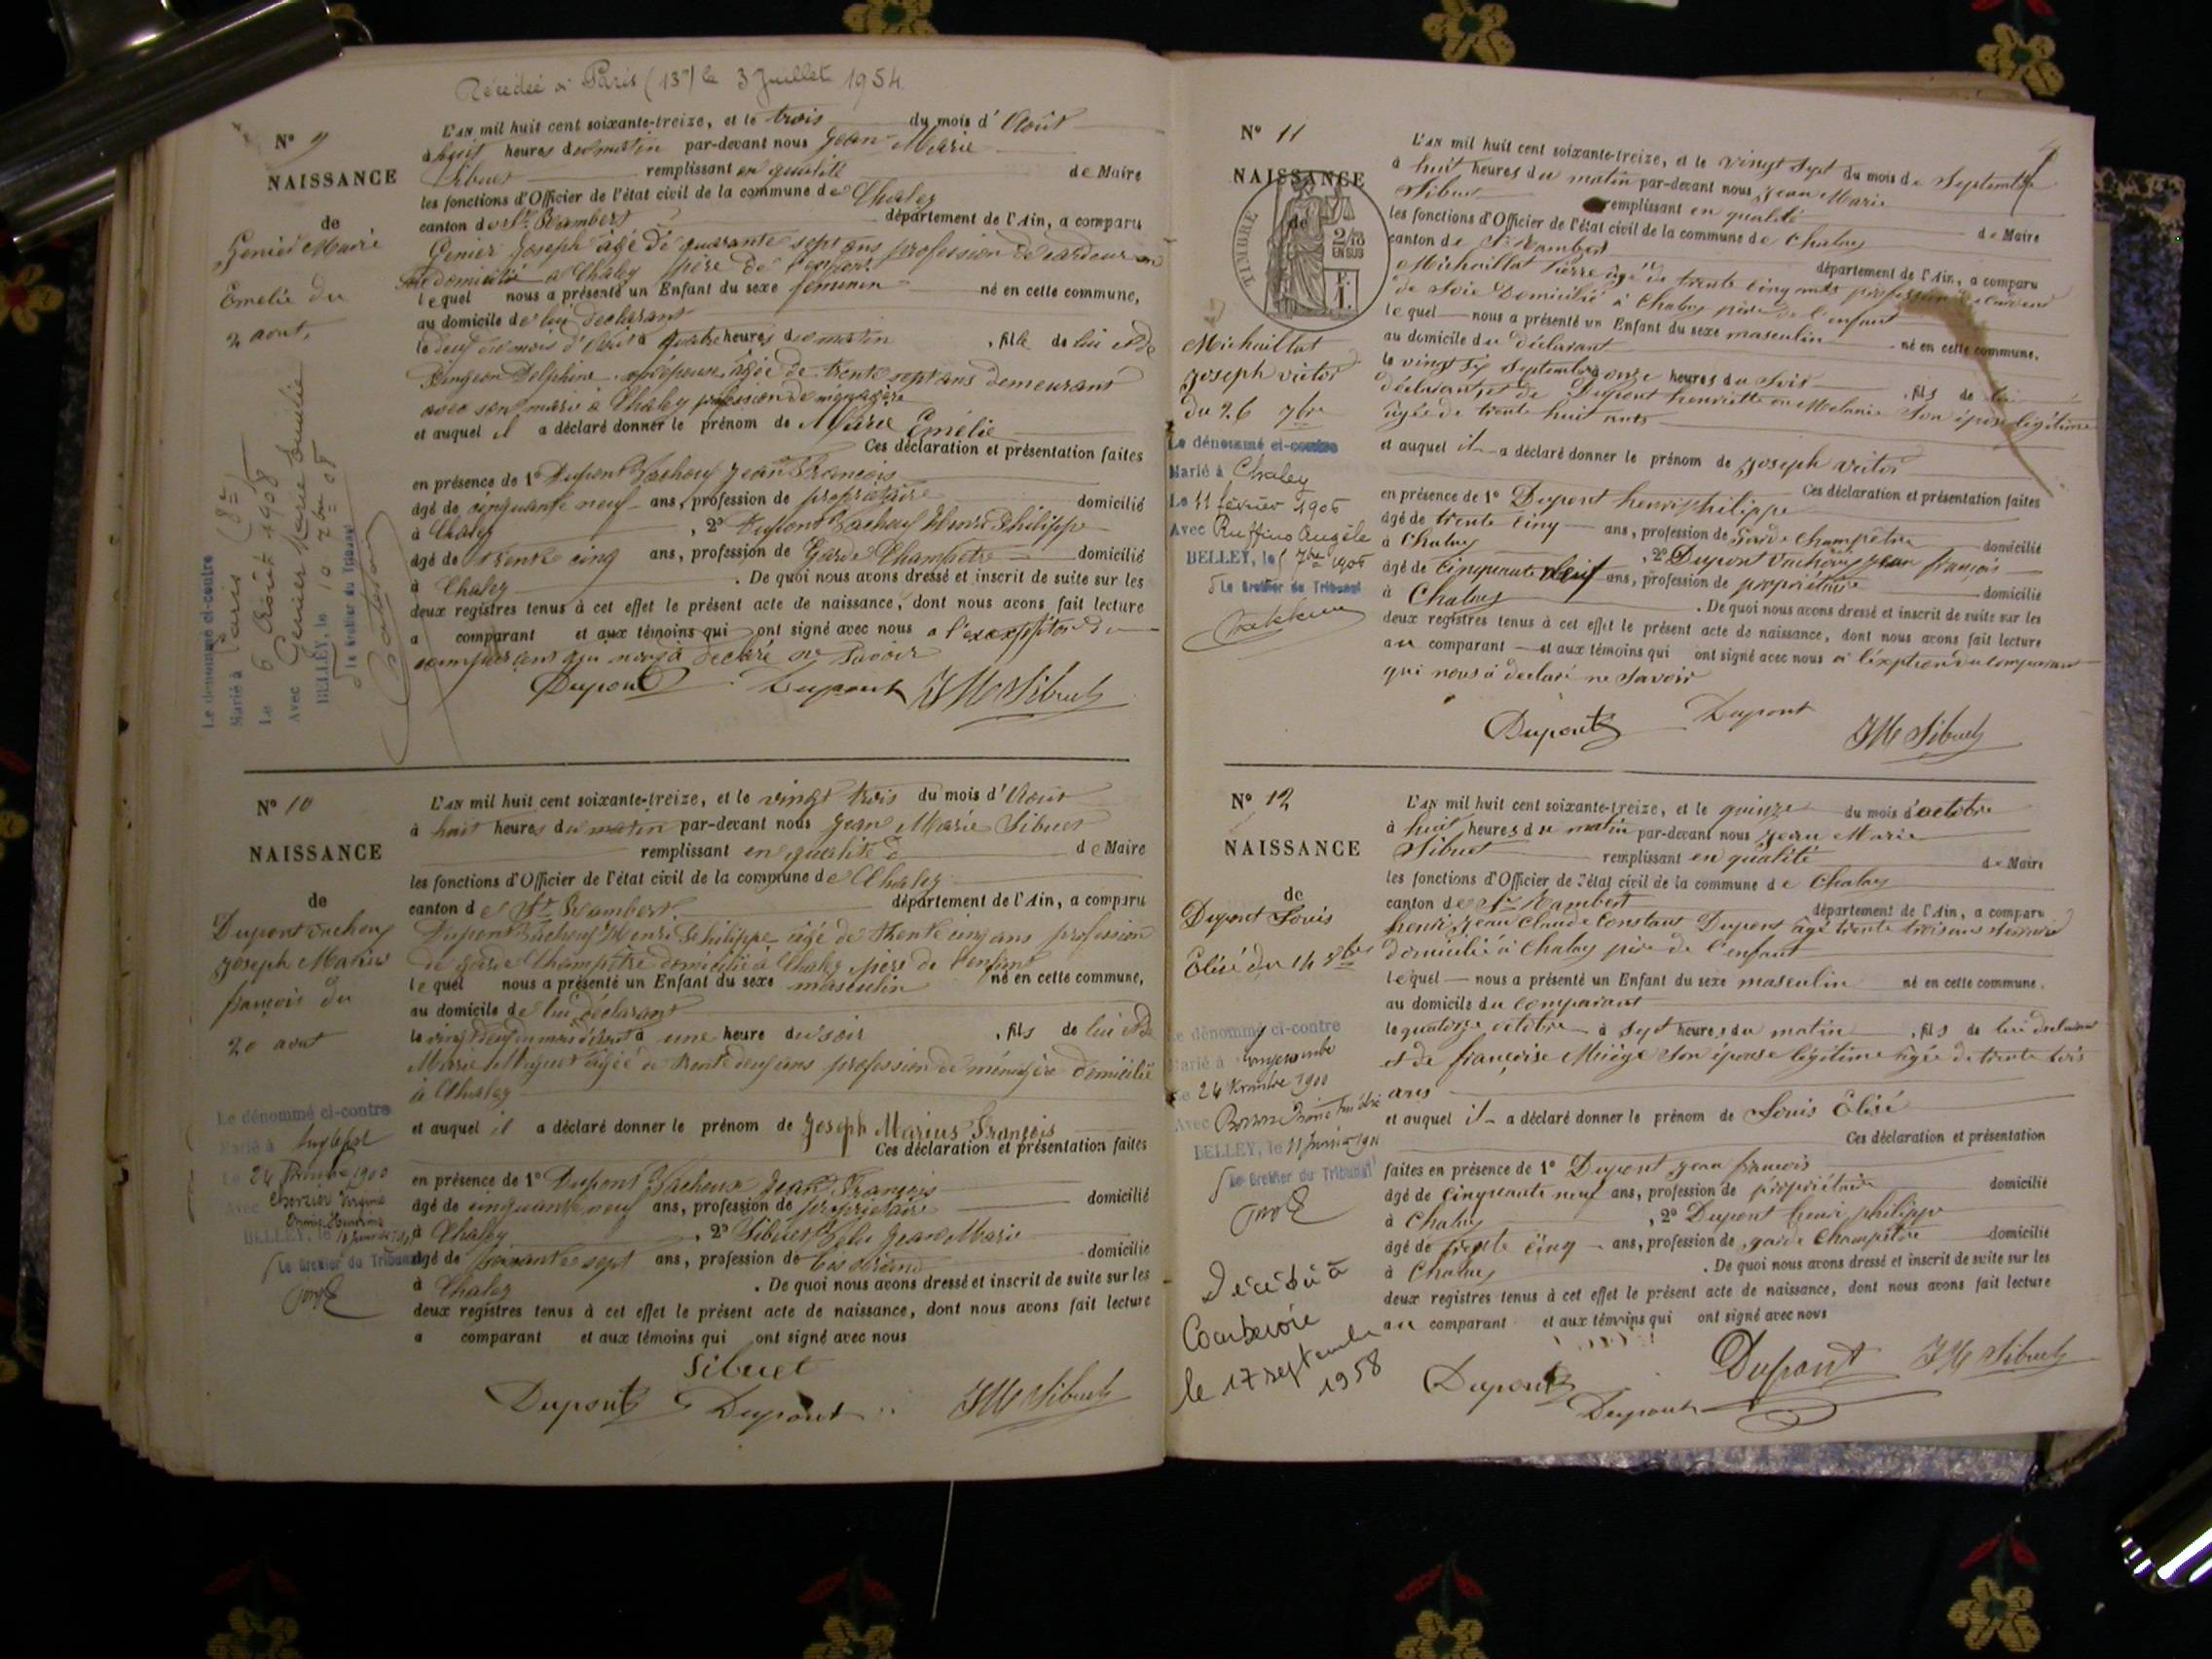 Décédée à Paris (13e) le 3 Juillet 1954.
N° 9
NAISSANCE
de
Genier Marie
Emelie du
2 aout,
Le dénommé ci-contre
Marié à Paris (8e)
Le 6 Août 1908
Avec Genier Marie Emilie
BELLEY, le 10 7bre 08
Le Greffier du Tribunal
L'AN mil huit cent soixante-treize, et le trois du mois d'Août
à huit heures du matin par-devant nous Jean-Marie
Sibuet remplissant en qualité de Maire
les fonctions d'Officier de l'état civil de la commune de Chaley
canton de St Rambert département de l'Ain, a comparu
Genier Joseph âgé de quarante sept ans profession de cardeur en
soie domicilié à Chaley père de l'enfant
lequel nous a présenté un Enfant du sexe feminin né en cette commune,
au domicile de lui déclarant
le deux du mois d'Août à quatre heures du matin , fille de lui et de
Pingeon Delphine son épouse, âgée de trente sept ans demeurant
avec son mari à Chaley profession de ménagère
et auquel il a déclaré donner le prénom de Marie Emélie
Ces déclaration et présentation faites
en présence de 1° Dupont Vachoux Jean François
âgé de cinquante neuf ans, profession de propriétaire domicilié
à Chaley , 2° Dupont Vachoux Henri Philippe
âgé de trente cinq ans, profession de Garde Champêtre domicilié
à Chaley . De quoi nous avons dressé et inscrit de suite sur les
deux registres tenus à cet effet le présent acte de naissance, dont nous avons fait lecture
a comparant et aux témoins qui ont signé avec nous a l'exception du
comparant qui nous à déclaré ne savoir
Dupont Dupont JM Sibuet
N° 10
NAISSANCE
de
Dupont vachoux
Joseph Marius
françois du
20 aout
Le dénommé ci-contre
Marié à
Le 24 1900
Avec Virginie
BELLEY, le
Le Greffier du Tribunal
L'AN mil huit cent soixante-treize, et le vingt trois du mois d'Août
à huit heures du matin par-devant nous Jean Marie Sibuet
remplissant en qualité de Maire
les fonctions d'Officier de l'état civil de la commune de Chaley
canton de St Rambert département de l'Ain, a comparu
Dupont Vachoux Henri Philippe âgé de trente cinq ans profession
de garde Champêtre domicilié à Chaley père de l'enfant
lequel nous a présenté un Enfant du sexe masculin né en cette commune,
au domicile de lui déclarant
le vingt deux du mois d'Août à une heure du soir , fils de lui et de
Marie Miguet âgée de trente deux ans profession de ménagère domicilié
à Chaley
et auquel il a déclaré donner le prénom de Joseph Marius François
Ces déclaration et présentation faites
en présence de 1° Dupont Vachoux Jean François
âgé de cinquante neuf ans, profession de propriétaire domicilié
à Chaley , 2° Sibuet Jean Marie
âgé de sept ans, profession de tisserand domicilié
à Chaley . De quoi nous avons dressé et inscrit de suite sur les
deux registres tenus à cet effet le présent acte de naissance, dont nous avons fait lecture
a comparant et aux témoins qui ont signé avec nous
Sibuet
Dupont Dupont JM Sibuet
N° 11
NAISSANCE
de
TIMBRE
2/10
EN SUS
F.
1.
Michaillat
Joseph victor
du 26 7bre
Le dénommé ci-contre
Marié à Chaley
Le 11 février 1905
Avec Ruffino Angèle
BELLEY, le 7bre 1905
Le Greffier du Tribunal
L'AN mil huit cent soixante-treize, et le vingt sept du mois de Septembre
à huit heures du matin par-devant nous Jean Marie
Sibuet remplissant en qualité de Maire
les fonctions d'Officier de l'état civil de la commune de Chaley
canton de St Rambert département de l'Ain, a comparu
Michaillat Pierre âgé de trente cinq ans profession de cardeur
de soie Domicilié à Chaley père de l'enfant
lequel nous a présenté un Enfant du sexe masculin né en cette commune.
au domicile du déclarant
le vingt six septembre à onze heures du soir , fils de lui
déclarant et de Dupont henriette ou Melanie Son épouse légitime
âgée de trente huit ans
et auquel il a déclaré donner le prénom de Joseph victor
Ces déclaration et présentation faites
en présence de 1° Dupont henri philippe
âgé de trente cinq ans, profession de Garde Champêtre domicilié
à Chaley , 2° Dupont Vachoux Jean françois
âgé de cinquante neuf ans, profession de propriétaire domicilié
à Chaley . De quoi nous avons dressé et inscrit de suite sur les
deux registres tenus à cet effet le présent acte de naissance, dont nous avons fait lecture
au comparant et aux témoins qui ont signé avec nous à l'exption du comparant
qui nous à declaré ne Savoir
Dupont Dupont JM Sibuet
N° 12
NAISSANCE
de
Dupont Louis
Elisé du 14 8bre
Le dénommé ci-contre
Marié à
Le 24 1900
Avec
BELLEY, le 11
Le Greffier du Tribunal
Décédé à
Courbevoie
le 17 septembre
1958
L'AN mil huit cent soixante-treize, et le quinze du mois d'octobre
à huit heures du matin par-devant nous Jean Marie
Sibuet remplissant en qualité de Maire
les fonctions d'Officier de l'état civil de la commune de Chaley
canton de St Rambert département de l'Ain, a comparu
henri Jean Claude Constant Dupont âgé trente trois ans
domicilié à Chaley père de l'enfant
lequel nous a présenté un Enfant du sexe masculin né en cette commune.
au domicile du comparant
le quatorze octobre à sept heures du matin , fils de lui déclarant
et de françoise Miège Son épouse légitime âgée de trente trois
ans
et auquel il a déclaré donner le prénom de Louis Elisé
Ces déclaration et présentation
faites en présence de 1° Dupont Jean françois
âgé de cinquante neuf ans, profession de propriétaire domicilié
à Chaley , 2° Dupont henri philippe
âgé de trente cinq ans, profession de garde Champêtre domicilié
à Chaley . De quoi nous avons dressé et inscrit de suite sur les
deux registres tenus à cet effet le présent acte de naissance, dont nous avons fait lecture
au comparant et aux témoins qui ont signé avec nous
Dupont Dupont Dupont JM Sibuet